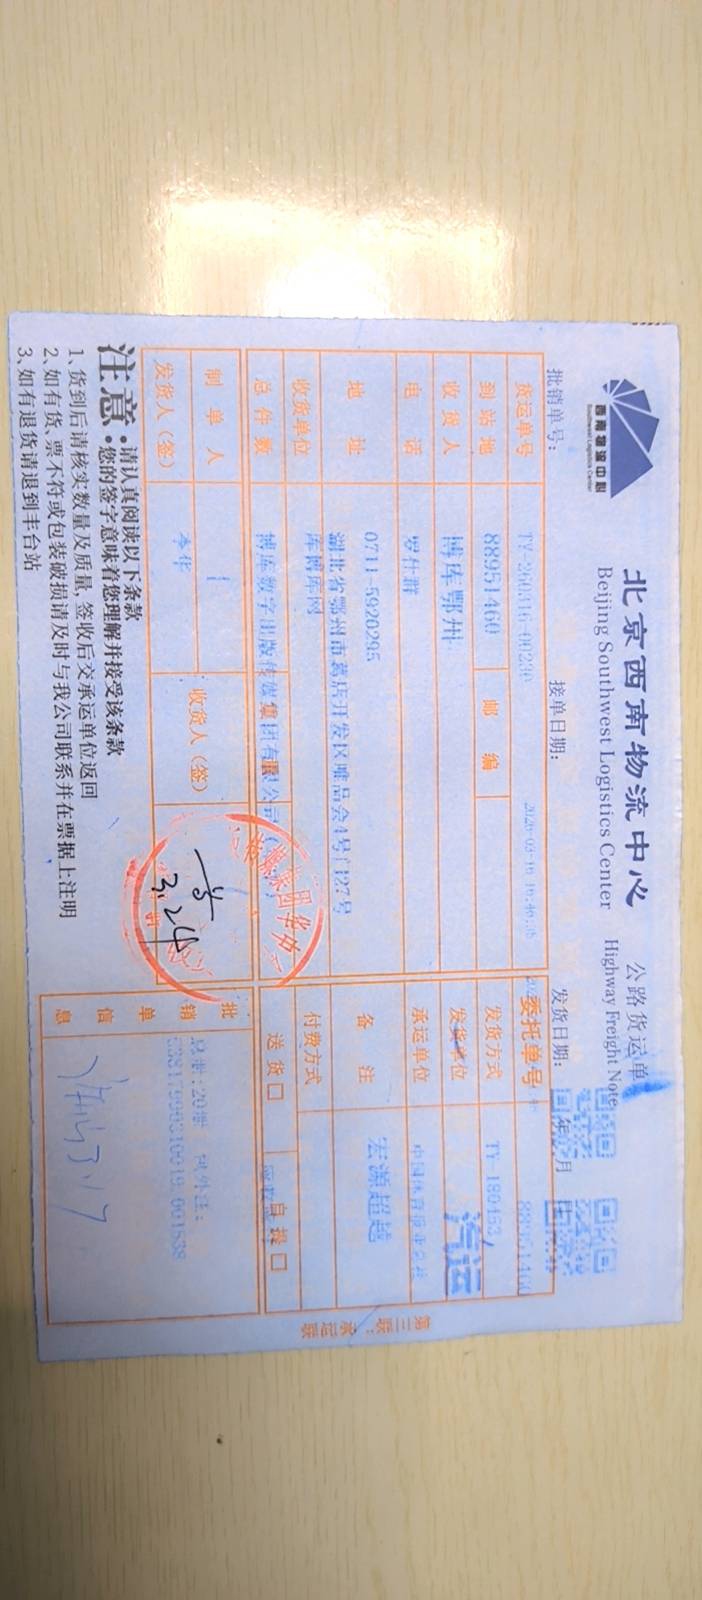 西南物流中心
Southwest Logistics Center
北京西南物流中心 公路货运单
Beijing Southwest Logistics Center Highway Freight Note
批销单号： 接单日期： 发货日期： 年 月
货运单号 TY-260316-00230 委托单号 88951460
到站地 88951460 邮编 发货方式 TY-180453 汽运
收货人 博库鄂州 发货单位
电话 罗仕群 承运单位 中国体育报业总社
地址 0711-5920295 备注 宏源超越
湖北省鄂州市葛店开发区唯品会4号门27号
收货单位 库博库网 付费方式
总件数 博库数字出版传媒集团有限公司 送货口 自提口
制单人 1 收货人（签） 批销单信息 总册：20册
发货人（签） 李华
3.24
注意：请认真阅读以下条款
您的签字意味着您理解并接受该条款
1、货到后请核实数量及质量，签收后交承运单位返回
2、如有货、票不符或包装破损请及时与我公司联系并在票据上注明
3、如有退货请退到丰台站
第三联：承运联